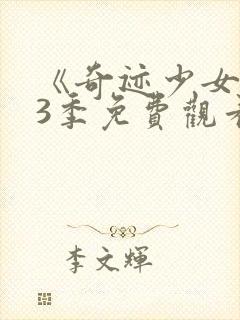 《奇迹少女
3季免費觀看
李文輝